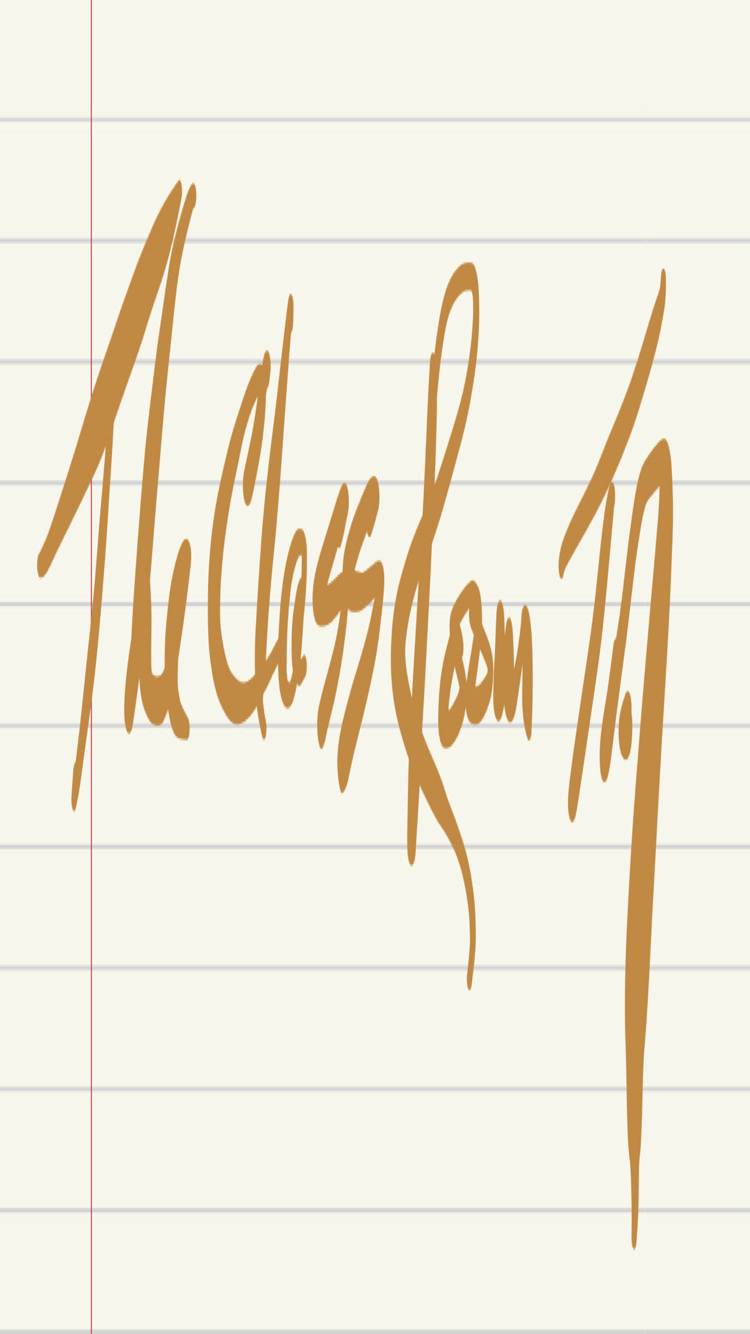 The Class Room